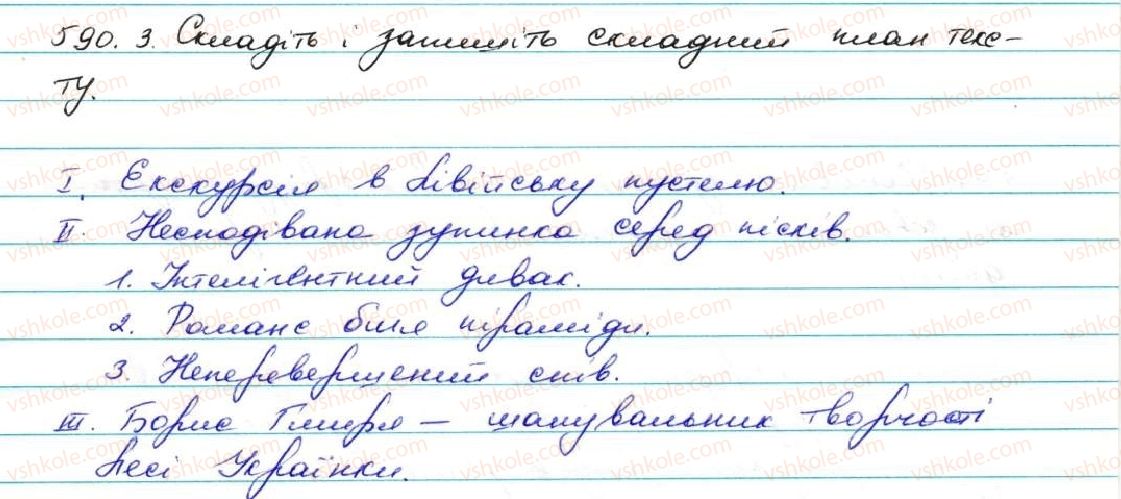 590. 3. Складіть і запишіть складний план текс-
ту.
I. Екскурсія в Лівійську пустелю.
II. Несподівана зупинка серед пісків.
1. Інтелігентний дивак.
2. Романс біля піраміди.
3. Неперевершений спів.
III. Борис Гмиря – шанувальник творчості
Лесі Українки.